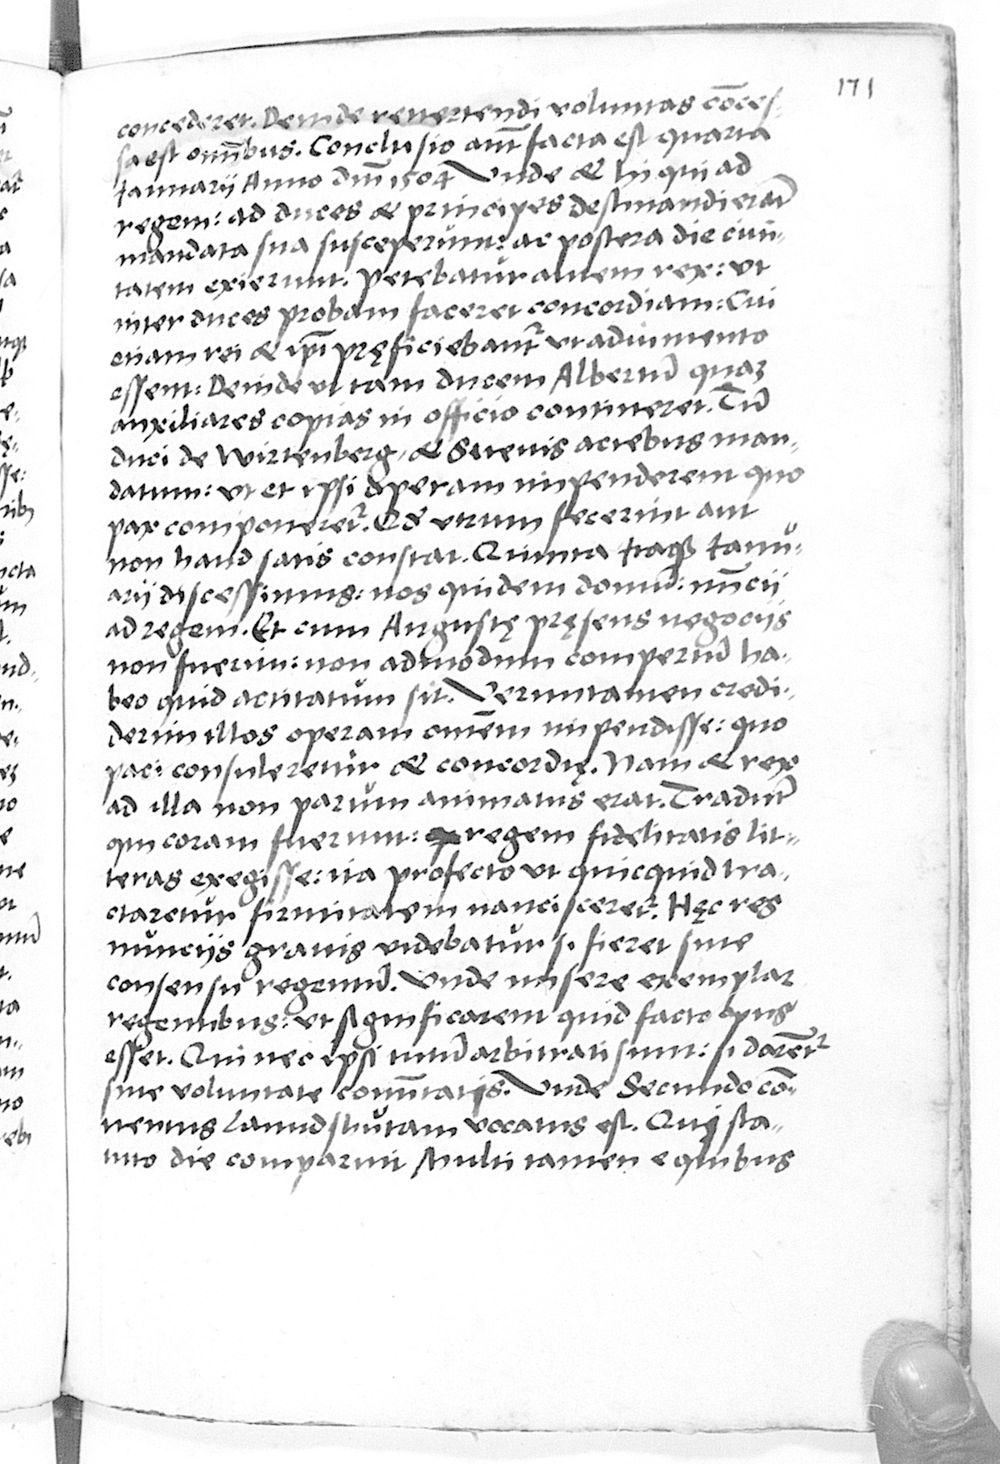 171
concederet. Deinde reuertendi voluntas cōces-
sa est omībus. Conclusio aut̄ facta est quarta
Januarij Anno dm̄ 1504 Vnde & hi qui ad
regem: ad duces & principes destinandi erāt
mandata sua susceperunt: ac postera die ciui-
tatem exierunt. Petebatur autem rex: vt
inter duces probam faceret concordiam: Cui
etiam rei & ip̄i pręficiebant͛ vt adiumento
essent: Deinde vt tam ducem Albertū quaꝫ
auxiliares copias in officio contineret. Tū
duci de Wirtenberg, & Sueuis acrebus man-
datum: vt et ipsi operam impenderent quo
pax componeret͛. Qd vtrum fecerint aut
non haud satis constat. Quinta itaqꝫ Janu-
arij discessimus: nos quidem domū: nūcij
ad regem. Et cum Augustę pręsens negocijs
non fuerim: non admodum compertū ha-
beo quid actitatum sit. Veruntamen credi-
derim illos operam omēm impendisse: quo
paci consuleretur & concordię. Nam & rex
ad illa non parum animatus erat. Tradūt
qui coram fuerunt: regem fidelitatis lit-
teras exegisse: ita profecto vt quicquid tra-
ctaretur firmitatem nancisceret͛. Hęc res
nuncijs grauis videbatur si fieret sine
consensu regentiū. Vnde misere exemplar
regentibus: vt significarent quid facto opus
esset. Qui nec ipsi tutū arbitrati sunt: si darēt͛
sine voluntate com̄tatis. Vnde Secundo cō-
uentus Lanndshutam vocatus est. Qui sta-
tuto die comparuit Multi tamen e quibus